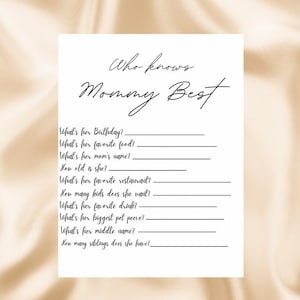 Who knows
Mommy Best
What's her Birthday?
What's her favorite food?
What's her mom's name?
How old is she?
What's her favorite restaurant?
How many kids does she want?
What's her favorite drink?
What's her biggest pet peeve?
What's her middle name?
How many siblings does she have?